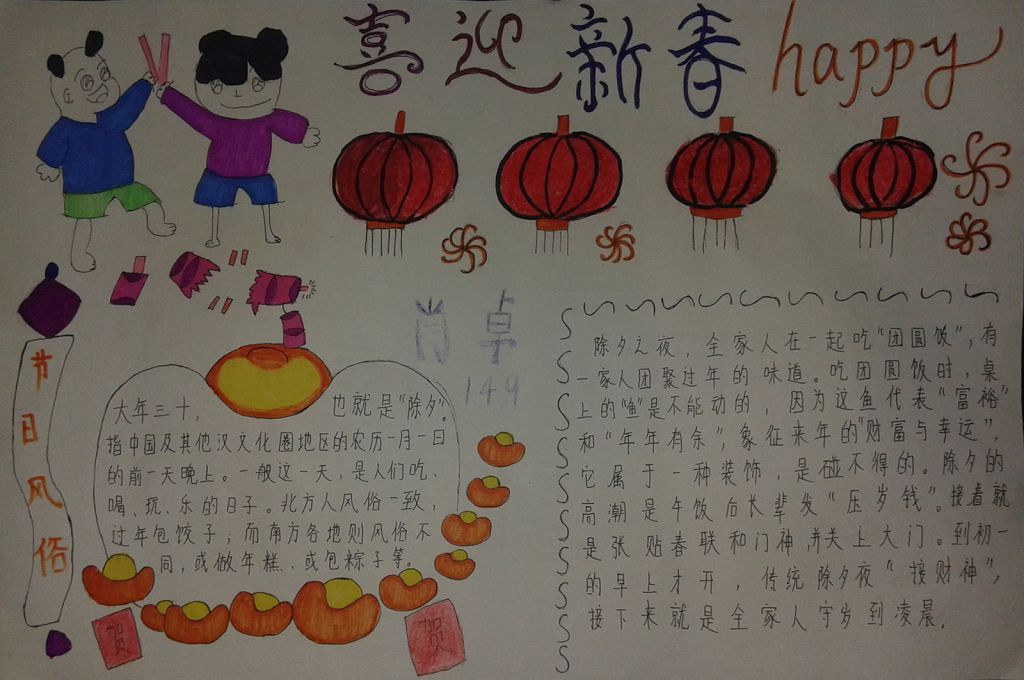 喜迎新春happy
肖卓
149
节日风俗
大年三十， 也就是“除夕”。
指中国及其他汉文化圈地区的农历一月一日
的前一天晚上。一般这一天，是人们吃、
喝、玩、乐的日子。北方人风俗一致，
过年包饺子；而南方各地则风俗不
同，或做年糕、或包粽子等。
贺
贺
除夕之夜，全家人在一起吃“团圆饭”，有
一家人团聚过年的味道。吃团圆饭时，桌
上的“鱼”是不能动的，因为这鱼代表“富裕”
和“年年有余”，象征来年的“财富与幸运”，
它属于一种装饰，是碰不得的。除夕的
高潮是午饭后长辈发“压岁钱”。接着就
是张贴春联和门神，并关上大门。到初一
的早上才开，传统除夕夜“接财神”，
接下来就是全家人守岁到凌晨，